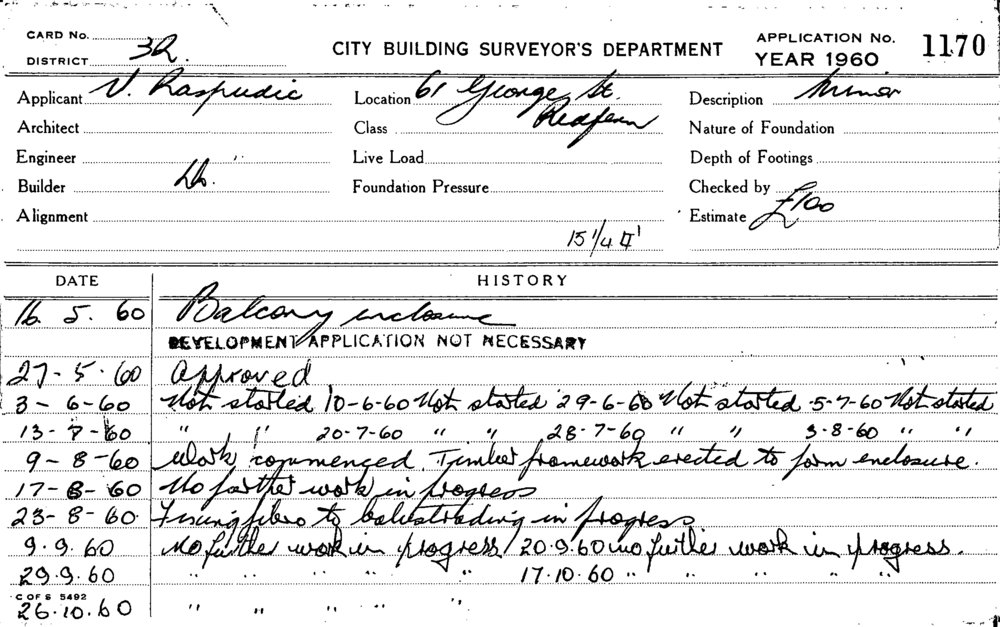 CARD No.
DISTRICT 32.
CITY BUILDING SURVEYOR'S DEPARTMENT
APPLICATION No. 1170
YEAR 1960
Applicant V. Raspudic
Location 61 George St.
Redfern
Description Minor
Architect
Class
Nature of Foundation
Engineer "
Live Load
Depth of Footings
Builder
Foundation Pressure
Checked by
Alignment
Estimate £100
15 1/4 □'
DATE HISTORY
16. 5. 60 Balcony enclosure
DEVELOPMENT APPLICATION NOT NECESSARY
27-5-60 Approved
3-6-60 Not started 10-6-60 Not started 29-6-60 Not started 5-7-60 Not started
13-7-60 " " 20-7-60 " " 28-7-60 " " 3-8-60 " "
9-8-60 Work commenced. Timber framework erected to form enclosure.
17-8-60 No further work in progress
23-8-60 Fixing fibro to balustrading in progress
9.9.60 No further work in progress 20.9.60 no further work in progress.
29.9.60 " " " " " 17.10.60 " " " " "
C OF S 5492
26.10.60 " " " " "